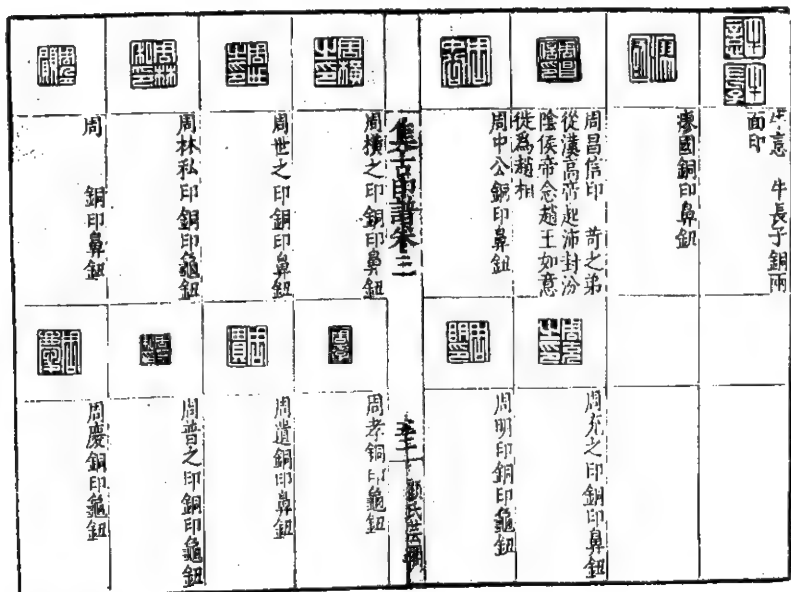 牛意 牛長子銅兩
面印
瘳國銅印鼻鈕
周昌信印 苛之弟
從漢高帝起沛封汾
陰侯帝念趙王如意
徙為趙相
周中公銅印鼻鈕
周充之印銅印鼻鈕
周明印銅印龜鈕
集古印譜卷三
顧氏芸閣
周橫之印銅印鼻鈕
周世之印銅印鼻鈕
周林私印銅印龜鈕
周 銅印鼻鈕
周孝銅印龜鈕
周遺銅印鼻鈕
周普之印銅印龜鈕
周慶銅印龜鈕